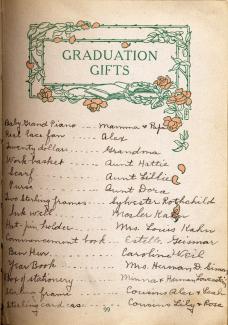 GRADUATION
GIFTS
Baby Grand Piano .... Mamma & Papa
Real lace fan ..... Alex
Twenty dollars .... Grandma
Work-basket .... Aunt Hattie
Scarf .... Aunt Libbie
Purse .... Aunt Dora
Two Sterling frames - Sylvester Rothchild
Ink well .... Mosler Kahn
Hat-pin holder .. Mrs. Louis Kahn
Commencement book . Estelle Geismar
Ben Hur .... Caroline Weil
Year Book .... Mrs. Herman D.
Box of stationery .. Minna & Herman Lowenstein
Sterling frame - Cousins Alex & Leah
Sterling card-case .. Cousins Lily & Rose
99